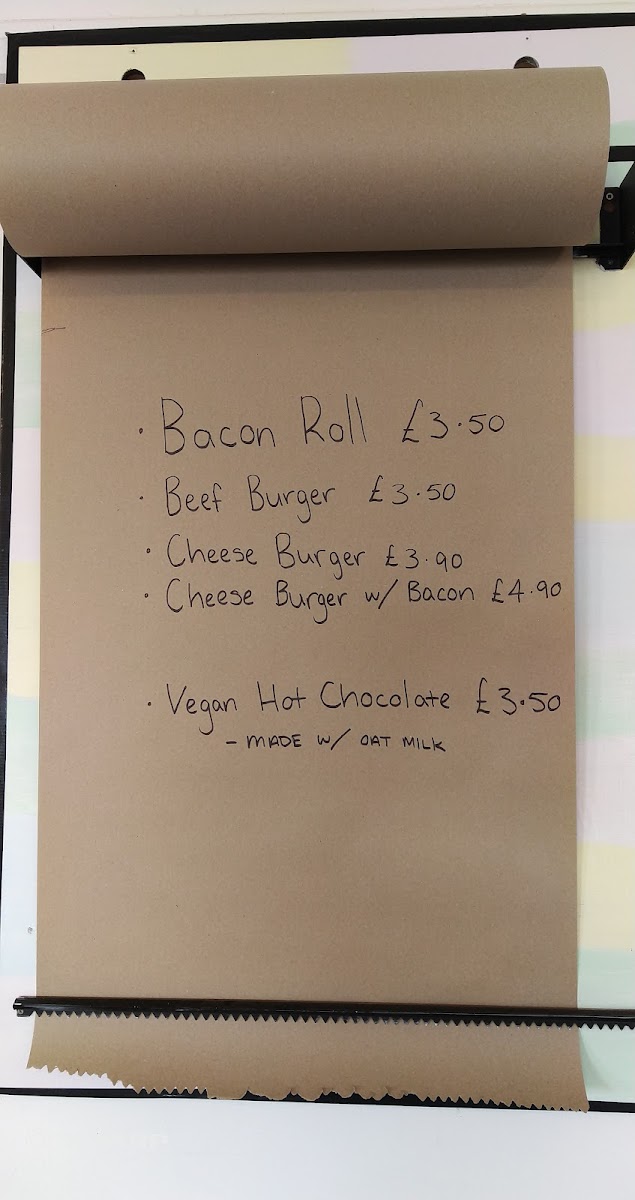 · Bacon Roll £3.50
· Beef Burger £3.50
· Cheese Burger £3.90
· Cheese Burger w/ Bacon £4.90
· Vegan Hot Chocolate £3.50
- MADE W/ OAT MILK